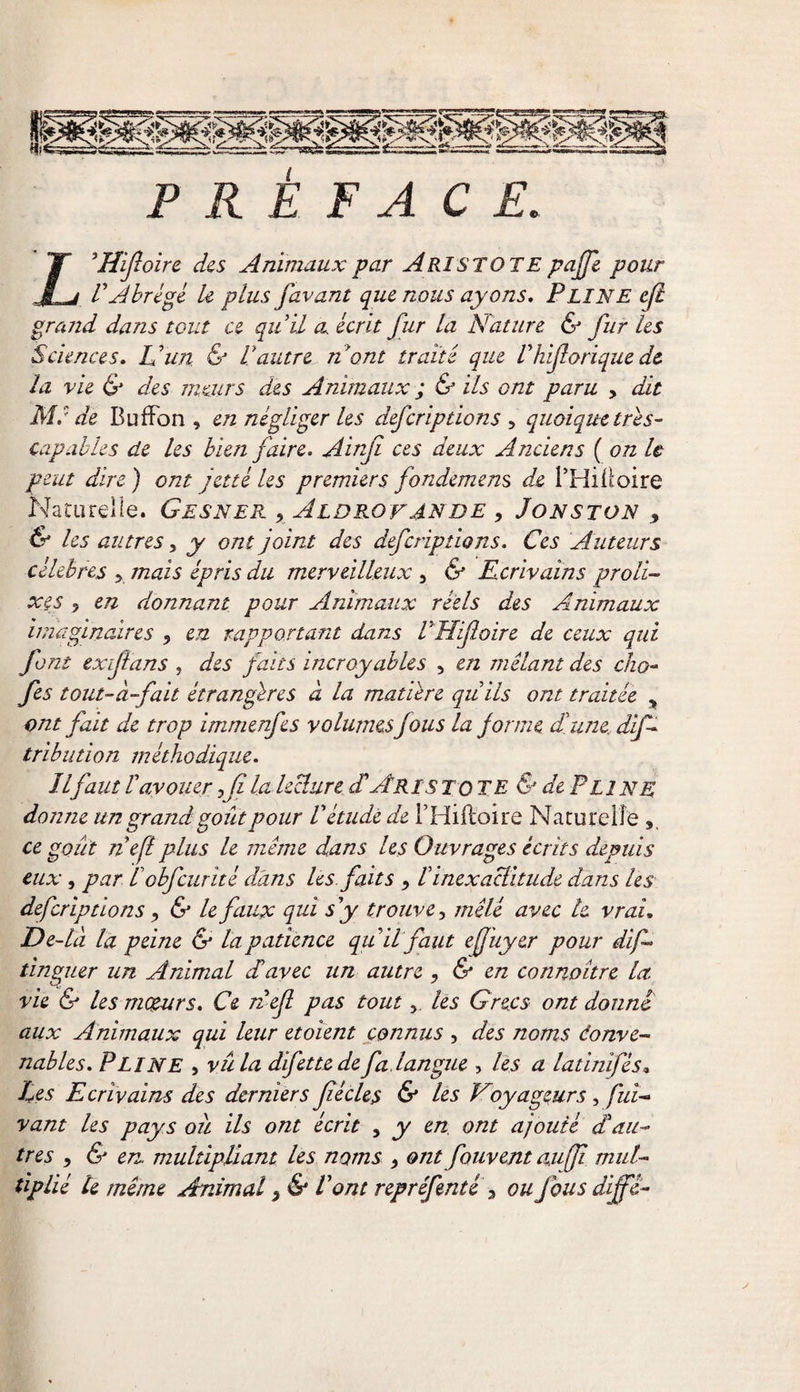 PRÉFACE.
L'Hiſtoire des Animaux par ARISTOTE paſſe pour
l'Abrégé le plus ſavant que nous ayons. PLINE eſt
grand dans tout ce qu'il a écrit ſur la Nature & ſur les
Sciences. L'un & l'autre n'ont traité que l'hiſtorique de
la vie & des mœurs des Animaux ; & ils ont paru , dit
M.r de Buffon , en négliger les deſcriptions , quoique très-
capables de les bien faire. Ainſi ces deux Anciens ( on le
peut dire ) ont jetté les premiers fondemens de l'Hiſtoire
Naturelle. GESNER , ALDROVANDE , JONSTON ,
& les autres , y ont joint des deſcriptions. Ces Auteurs
célebres , mais épris du merveilleux , & Ecrivains proli-
xes , en donnant pour Animaux réels des Animaux
imaginaires , en rapportant dans l'Hiſtoire de ceux qui
ſont exiſtans , des faits incroyables , en mêlant des cho-
ſes tout-à-fait étrangères à la matière qu'ils ont traitée ,
ont fait de trop immenſes volumes ſous la forme d'une diſ-
tribution méthodique.
Il faut l'avouer , ſi la lecture d'ARISTOTE & de PLINE
donne un grand goût pour l'étude de l'Hiſtoire Naturelle ,
ce goût n'eſt plus le même dans les Ouvrages écrits depuis
eux , par l'obſcurité dans les faits , l'inexactitude dans les
deſcriptions , & le faux qui s'y trouve , mêlé avec le vrai.
De-là la peine & la patience qu'il faut eſſuyer pour diſ-
tinguer un Animal d'avec un autre , & en connoître la
vie & les mœurs. Ce n'eſt pas tout , les Grecs ont donné
aux Animaux qui leur etoient connus , des noms conve-
nables. PLINE , vû la diſette de ſa langue , les a latiniſés.
Les Ecrivains des derniers ſiécles & les Voyageurs , ſui-
vant les pays où ils ont écrit , y en ont ajouté d'au-
tres , & en multipliant les noms , ont ſouvent auſſi mul-
tiplié le même Animal , & l'ont repréſenté , ou ſous diffé-